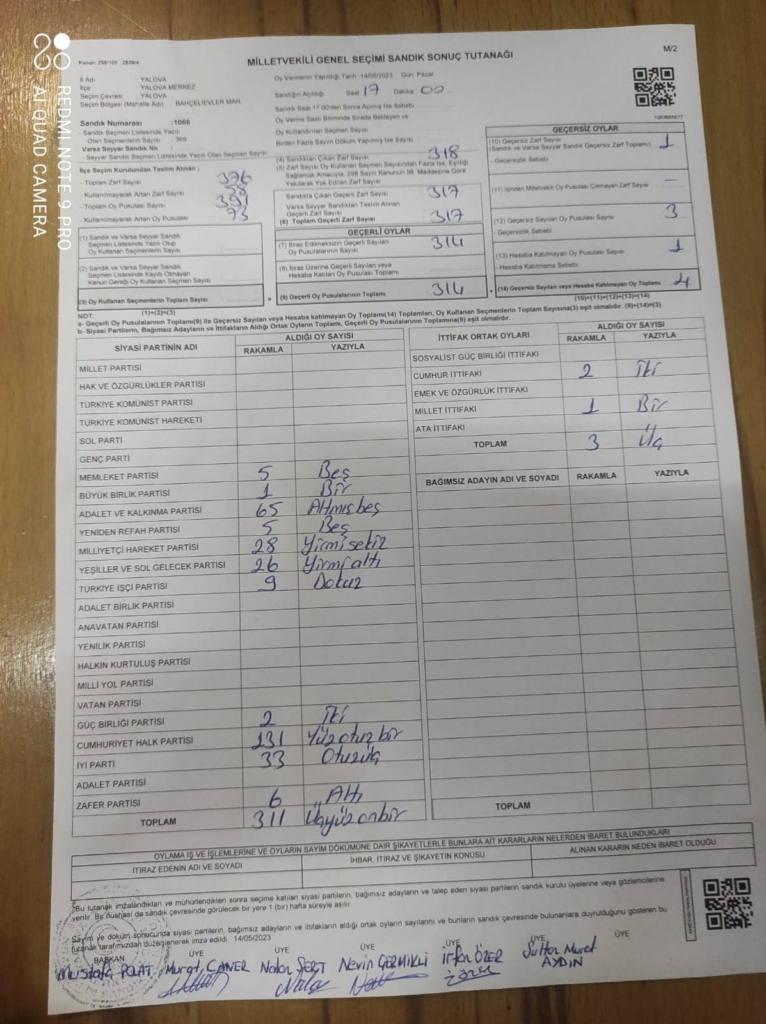 REDMI NOTE 9 PRO
AI QUAD CAMERA
M/2
MİLLETVEKİLİ GENEL SEÇİMİ SANDIK SONUÇ TUTANAĞI
İl Adı : YALOVA
İlçe : YALOVA MERKEZ
Seçim Çevresi : YALOVA
Seçim Bölgesi (Mahalle Adı) : BAHÇELİEVLER MAH.
Oy Vermenin Yapıldığı Tarih : 14/05/2023 Gün: Pazar
Sandığın Açıldığı Saat 17 Dakika 00
Sandık Saat 17:00'den Sonra Açılmış İse Sebebi
Sandık Numarası : 1066
- Sandık Seçmen Listesinde Yazılı
Olan Seçmenlerin Sayısı : 369
Varsa Seyyar Sandık No :
- Seyyar Sandık Seçmen Listesinde Yazılı Olan Seçmen Sayısı
Oy Verme Saati Bitiminde Sırada Bekleyen ve
Oy Kullandırılan Seçmen Sayısı
Birden Fazla Sayım Döküm Yapılmış İse Sayısı
İlçe Seçim Kurulundan Teslim Alınan :
- Toplam Zarf Sayısı 376
- Kullanılmayarak Artan Zarf Sayısı
- Toplam Oy Pusulası Sayısı 391
- Kullanılmayarak Artan Oy Pusulası 73
(4) Sandıktan Çıkan Zarf Sayısı 318
(5) Zarf Sayısı Oy Kullanan Seçmen Sayısından Fazla ise, Eşitliği
Sağlamak Amacıyla; 298 Sayılı Kanunun 98. Maddesine Göre
Yakılarak Yok Edilen Zarf Sayısı
Sandıkta Çıkan Geçerli Zarf Sayısı 317
Varsa Seyyar Sandıktan Teslim Alınan
Geçerli Zarf Sayısı
(6) Toplam Geçerli Zarf Sayısı 317
GEÇERSİZ OYLAR
(10) Geçersiz Zarf Sayısı 1
(Sandık ve Varsa Seyyar Sandık Geçersiz Zarf Toplamı)
- Geçersizlik Sebebi
(11) İçinden Milletvekili Oy Pusulası Çıkmayan Zarf Sayısı —
(12) Geçersiz Sayılan Oy Pusulası Sayısı 3
- Geçersizlik Sebebi
(13) Hesaba Katılmayan Oy Pusulası Sayısı 1
- Hesaba Katılmama Sebebi
(14) Geçersiz Sayılan veya Hesaba katılmayan Oy Toplamı 4
(10)+(11)+(12)+(13)=(14)
(1) Sandık ve Varsa Seyyar Sandık
Seçmen Listesinde Yazılı Olup
Oy Kullanan Seçmenlerin Sayısı
(2) Sandık ve Varsa Seyyar Sandık
Seçmen Listesinde Kayıtlı Olmayan
Kanun Gereği Oy Kullanan Seçmen Sayısı
(3) Oy Kullanan Seçmenlerin Toplam Sayısı
(1)+(2)=(3)
GEÇERLİ OYLAR
(7) İtiraz Edilmeksizin Geçerli Sayılan 314
Oy Pusulalarının Sayısı
(8) İtiraz Üzerine Geçerli Sayılan veya
Hesaba Katılan Oy Pusulası Toplamı
(9) Geçerli Oy Pusulalarının Toplamı 314
NOT:
a- Geçerli Oy Pusulalarının Toplamı(9) ile Geçersiz Sayılan veya Hesaba katılmayan Oy Toplamı(14) Toplamları, Oy Kullanan Seçmenlerin Toplam Sayısına(3) eşit olmalıdır. (9)+(14)=(3)
b- Siyasi Partilerin, Bağımsız Adayların ve İttifakların Aldığı Ortak Oyların Toplamı, Geçerli Oy Pusulalarının Toplamına(9) eşit olmalıdır.
SİYASİ PARTİNİN ADI ALDIĞI OY SAYISI
RAKAMLA YAZIYLA
MİLLET PARTİSİ
HAK VE ÖZGÜRLÜKLER PARTİSİ
TÜRKİYE KOMÜNİST PARTİSİ
TÜRKİYE KOMÜNİST HAREKETİ
SOL PARTİ
GENÇ PARTİ
MEMLEKET PARTİSİ 5 Beş
BÜYÜK BİRLİK PARTİSİ 1 Bir
ADALET VE KALKINMA PARTİSİ 65 Altmışbeş
YENİDEN REFAH PARTİSİ 5 Beş
MİLLİYETÇİ HAREKET PARTİSİ 28 Yirmisekiz
YEŞİLLER VE SOL GELECEK PARTİSİ 26 Yirmialtı
TÜRKİYE İŞÇİ PARTİSİ 9 Dokuz
ADALET BİRLİK PARTİSİ
ANAVATAN PARTİSİ
YENİLİK PARTİSİ
HALKIN KURTULUŞ PARTİSİ
MİLLİ YOL PARTİSİ
VATAN PARTİSİ
GÜÇ BİRLİĞİ PARTİSİ 2 İki
CUMHURİYET HALK PARTİSİ 131 Yüzotuzbir
İYİ PARTİ 33 Otuzüç
ADALET PARTİSİ
ZAFER PARTİSİ 6 Altı
TOPLAM 311 Üçyüzonbir
İTTİFAK ORTAK OYLARI ALDIĞI OY SAYISI
RAKAMLA YAZIYLA
SOSYALİST GÜÇ BİRLİĞİ İTTİFAKI
CUMHUR İTTİFAKI 2 İki
EMEK VE ÖZGÜRLÜK İTTİFAKI
MİLLET İTTİFAKI 1 Bir
ATA İTTİFAKI
TOPLAM 3 Üç
BAĞIMSIZ ADAYIN ADI VE SOYADI RAKAMLA YAZIYLA
TOPLAM
OYLAMA İŞ VE İŞLEMLERİNE VE OYLARIN SAYIM DÖKÜMÜNE DAİR ŞİKAYETLERLE BUNLARA AİT KARARLARIN NELERDEN İBARET BULUNDUKLARI
İTİRAZ EDENİN ADI VE SOYADI İHBAR, İTİRAZ VE ŞİKAYETİN KONUSU ALINAN KARARIN NEDEN İBARET OLDUĞU
Bu tutanak imzalandıktan ve mühürlendikten sonra seçime katılan siyasi partilerin, bağımsız adayların ve talep eden siyasi partilerin sandık kurulu üyelerine veya gözlemcilerine
verilir. Bu nüshası da sandık çevresinde görülecek bir yere 1 (bir) hafta süreyle asılır.
Sayım ve döküm sonucunda siyasi partilerin, bağımsız adayların ve ittifakların aldığı ortak oyların sayılarını ve bunların sandık çevresinde bulunanlara duyrulduğunu gösteren bu
tutanak tarafımızdan düzenlenerek imza edildi. 14/05/2023
BAŞKAN ÜYE ÜYE ÜYE ÜYE ÜYE ÜYE
Mustafa POLAT Murat CANER Nevin GERMİKLİ İrfan ÖZER Sultan Murat AYDIN